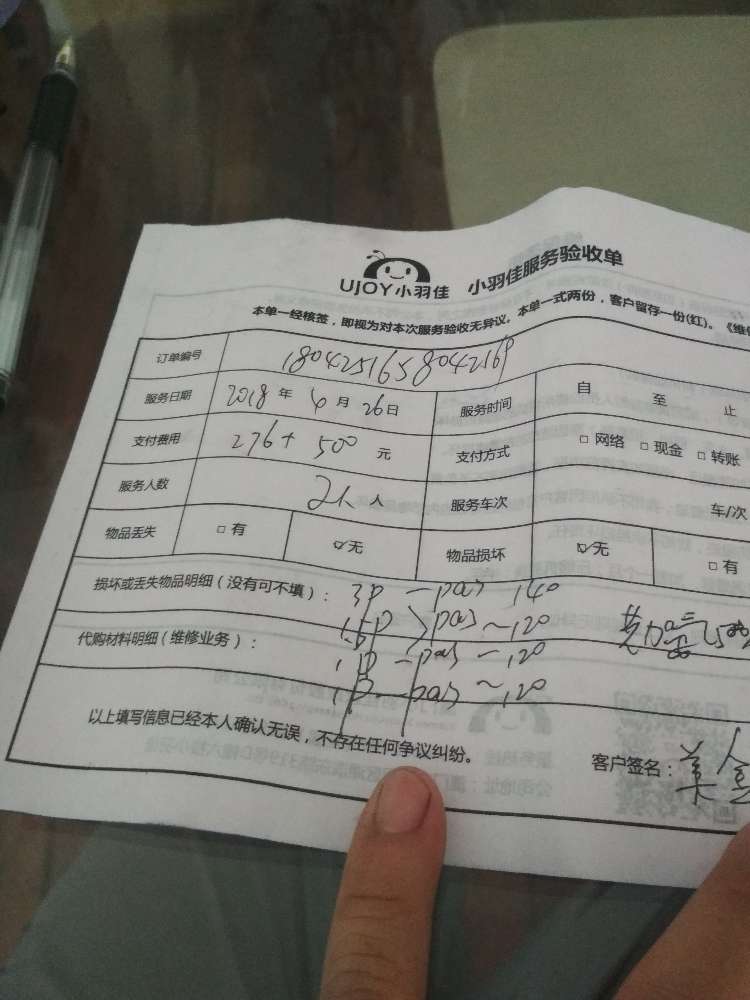 UJOY小羽佳 小羽佳服务验收单
本单一经核签，即视为对本次服务验收无异议。本单一式两份，客户留存一份(红)。《维
订单编号 1804251658042569
服务日期 2018 年 4 月 26 日 服务时间 自 至 止
支付费用 276+500 元 支付方式 □ 网络 □ 现金 □ 转账
服务人数 2人 人 服务车次 车/次
物品丢失 □ 有 ☑ 无 物品损坏 ☑ 无 □ 有
损坏或丢失物品明细（没有可不填）： 3P — 加氟 140
代购材料明细（维修业务）： 1.5P 加氟 ~ 120
1P — 加氟 — 120
1P — 加氟 ~ 120
以上填写信息已经本人确认无误，不存在任何争议纠纷。 客户签名：